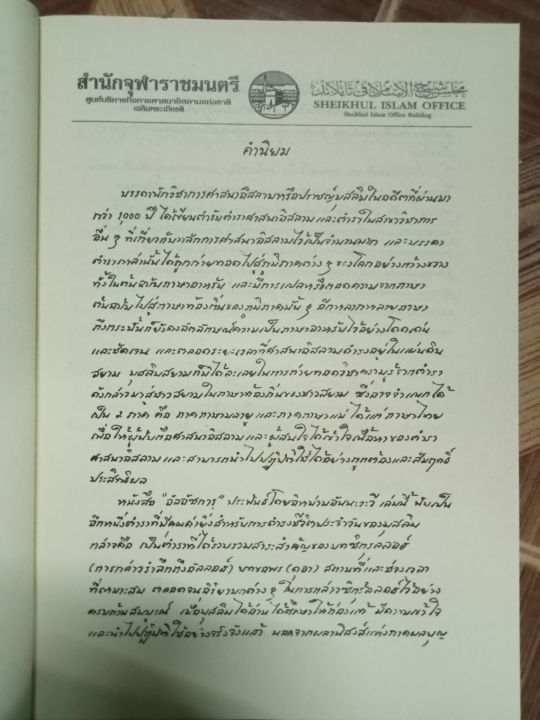 สำนักจุฬาราชมนตรี
ศูนย์บริหารกิจการศาสนาอิสลามแห่งชาติ
เฉลิมพระเกียรติ
SHEIKHUL ISLAM OFFICE
Sheikhul Islam Office Building
คำนิยม
บรรดานักวิชาการศาสนาอิสลามหรือปราชญ์มุสลิมในอดีตที่ผ่านมา
กว่า 1,000 ปี ได้เขียนตำรับตำราศาสนาอิสลาม และตำราในสาขาวิชาการ
อื่น ๆ ที่เกี่ยวกับหลักการศาสนาอิสลามไว้เป็นจำนวนมาก และบรรดา
ตำราเหล่านั้นได้ถูกถ่ายทอดไปสู่ภูมิภาคต่าง ๆ ของโลกอย่างกว้างขวาง
ทั้งในต้นฉบับภาษาอาหรับ และมีการแปลหรือถอดความจากภาษา
ต้นฉบับไปสู่ภาษาท้องถิ่นของภูมิภาคนั้น ๆ อีกหลากหลายภาษา
ถึงกระนั้นก็ยังคงอัตลักษณ์ความเป็นภาษาอาหรับไว้อย่างโดดเด่น
และชัดเจน และตลอดระยะเวลาที่ศาสนาอิสลามดำรงอยู่ในแผ่นดิน
สยาม มุสลิมสยามก็มิได้ละเลยในการถ่ายทอดวิชาความรู้จากตำรา
ดังกล่าวมาสู่ชาวสยามในภาษาท้องถิ่นของชาวสยาม ซึ่งอาจจำแนกได้
เป็น 2 ภาค คือ ภาคภาษามลายู และภาคภาษาแม่ ได้แก่ ภาษาไทย
เพื่อให้ผู้นับถือศาสนาอิสลาม และผู้สนใจได้เข้าใจเนื้อหาของตำรา
ศาสนาอิสลาม และสามารถนำไปปฏิบัติใช้ได้อย่างถูกต้องและสัมฤทธิ์
ประสิทธิผล
หนังสือ "อัลอัซการฺ" ประพันธ์โดยอิหม่ามอันนะวะวี เล่มนี้ นับเป็น
อีกหนึ่งตำราที่มีคุณค่ายิ่งสำหรับการดำรงชีวิตประจำวันของมุสลิม
กล่าวคือ เป็นตำราที่ได้รวบรวมสาระสำคัญของบทซิกรุ้ลลอฮ์
(การกล่าวรำลึกถึงอัลลอฮ์) บทขอพร (ดุอา) สถานที่และช่วงเวลา
ที่เหมาะสม ตลอดจนจริยามารยาทต่าง ๆ ในการกล่าวซิกรุ้ลลอฮ์ไว้อย่าง
ครบถ้วนสมบูรณ์ เมื่อมุสลิมได้อ่าน ได้ศึกษาให้ถ่องแท้ มีความเข้าใจ
และนำไปปฏิบัติใช้อย่างจริงจังแล้ว นอกจากผลานิสงส์แห่งภาคผลบุญ